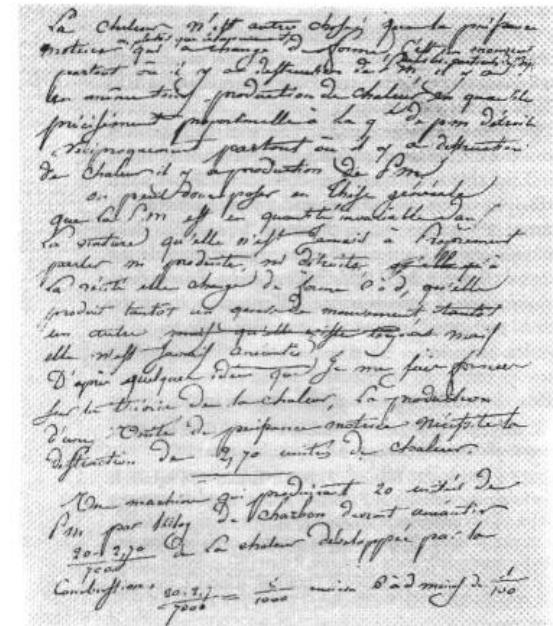 La chaleur n'est autre chose que la puissance
motrice ou plutôt que le mouvement qui a changé de forme. C'est un mouvement
partout où il y a destruction de P.M. il y a
en même temps production de chaleur en quantité
précisément proportionnelle à la qté de p m détruite
réciproquement partout où il y a destruction
de chaleur il y a production de P m
on peut donc poser en thèse générale
que la P m est en quantité invariable dans
la nature qu'elle n'est jamais à proprement
parler ni produite, ni détruite, qu'à
la vérité elle change de forme c à d, qu'elle
produit tantôt un genre de mouvement tantôt
un autre mais qu'elle existe toujours mais
elle n'est jamais anéantie
D'après quelques idées que je me suis formées
sur la théorie de la chaleur, la production
d'une Unité de puissance motrice nécessite la
destruction de 2,70 unités de chaleur.
Une machine qui produirait 20 unités de
P m par kilog de Charbon devrait anéantir
20. 2,70 / 7000 de la chaleur développée par la
Combustion. 20. 2,7 / 7000 = / 1000 environ c à d moins de 1/100